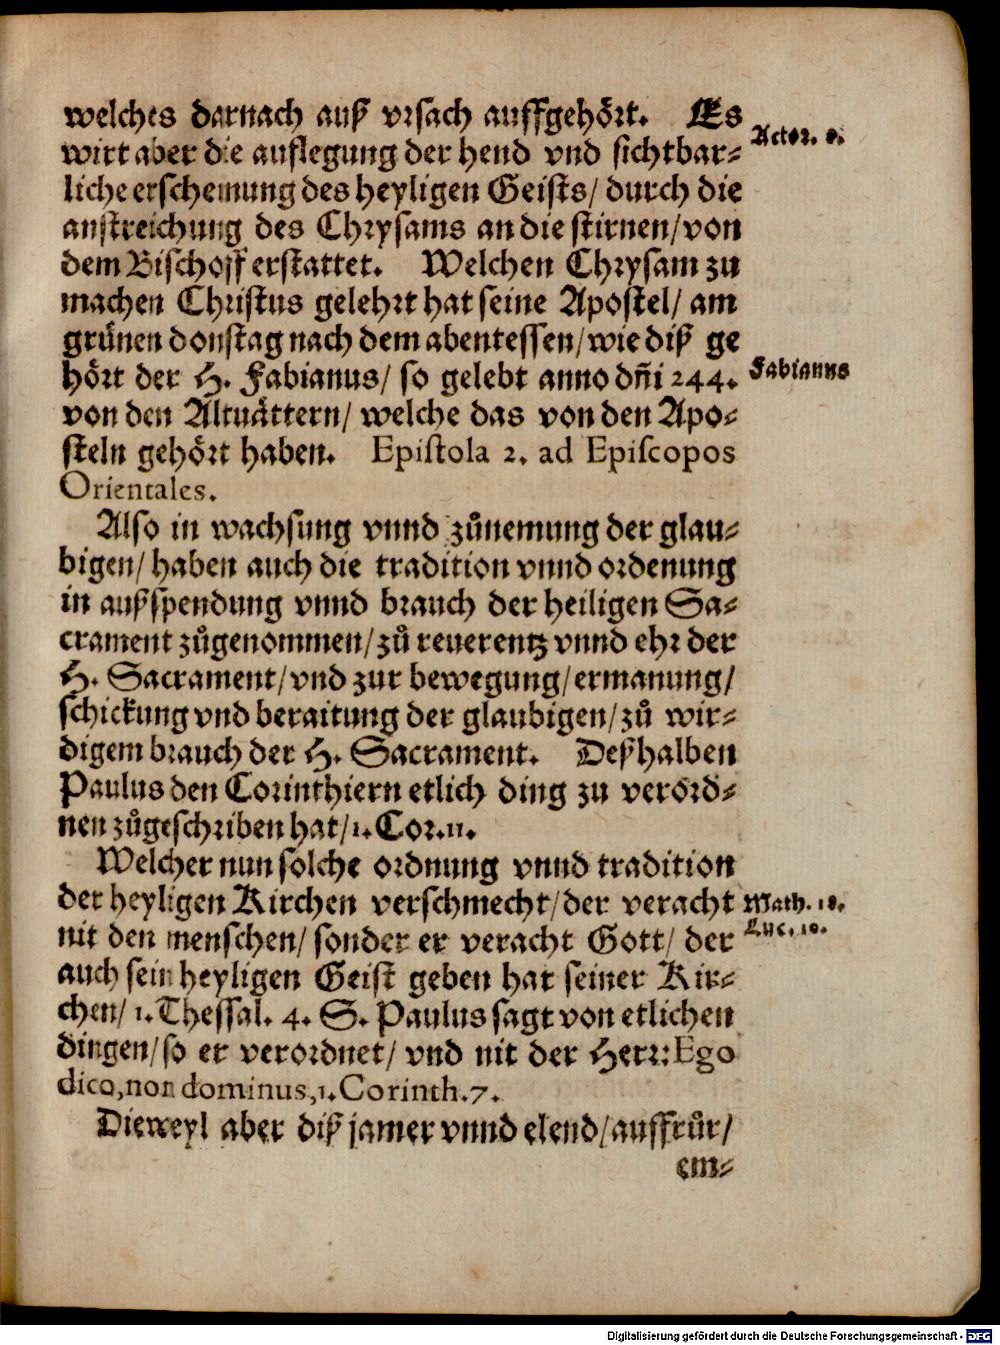 welches darnach auß vrsach auffgehört. Es
Actor. 8.
wirt aber die auflegung der hend vnd sichtbar-
liche erscheinung des heyligen Geists/ durch die
anstreichung des Chrysams an die stirnen/ von
dem Bischoff erstattet. Welchen Chrysam zu
machen Christus gelehrt hat seine Apostel/ am
grünen donstag nach dem abentessen/ wie diß ge
hört der H. Fabianus/ so gelebt anno dñi 244.
Fabianus
von den Altuättern/ welche das von den Apo-
steln gehört haben. Epistola 2. ad Episcopos
Orientales.
Also in wachsung vnnd zůnemung der glau-
bigen/ haben auch die tradition vnnd ordenung
in außspendung vnnd brauch der heiligen Sa-
crament zůgenommen/ zů reuerentz vnnd ehr der
H. Sacrament/ vnd zur bewegung/ ermanung/
schickung vnd beraitung der glaubigen/ zů wir-
digem brauch der H. Sacrament. Deßhalben
Paulus den Corinthiern etlich ding zu verord-
nen zůgeschriben hat/ 1. Cor. 11.
Welcher nun solche ordnung vnnd tradition
der heyligen Kirchen verschmecht/ der veracht
Math. 18.
nit den menschen/ sonder er veracht Gott/ der
Luc. 10.
auch sein heyligen Geist geben hat seiner Kir-
chen/ 1. Thessal. 4. S. Paulus sagt von etlichen
dingen/ so er verordnet/ vnd nit der Herr: Ego
dico, non dominus, 1. Corinth. 7.
Dieweyl aber diß jamer vnnd elend/ auffrůr/
em-
Digitalisierung gefördert durch die Deutsche Forschungsgemeinschaft - DFG